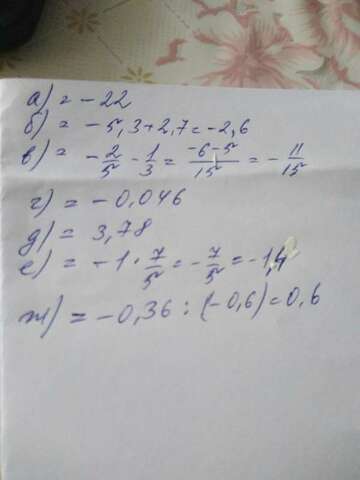 а) = -22
б) = -5,3+2,7=-2,6
в) = -2/5 - 1/3 = -6-5/15 = -11/15
г) = -0,046
д) = 3,78
е) = -1 · 7/5 = -7/5 = -1,4
ж) = -0,36 : (-0,6) = 0,6